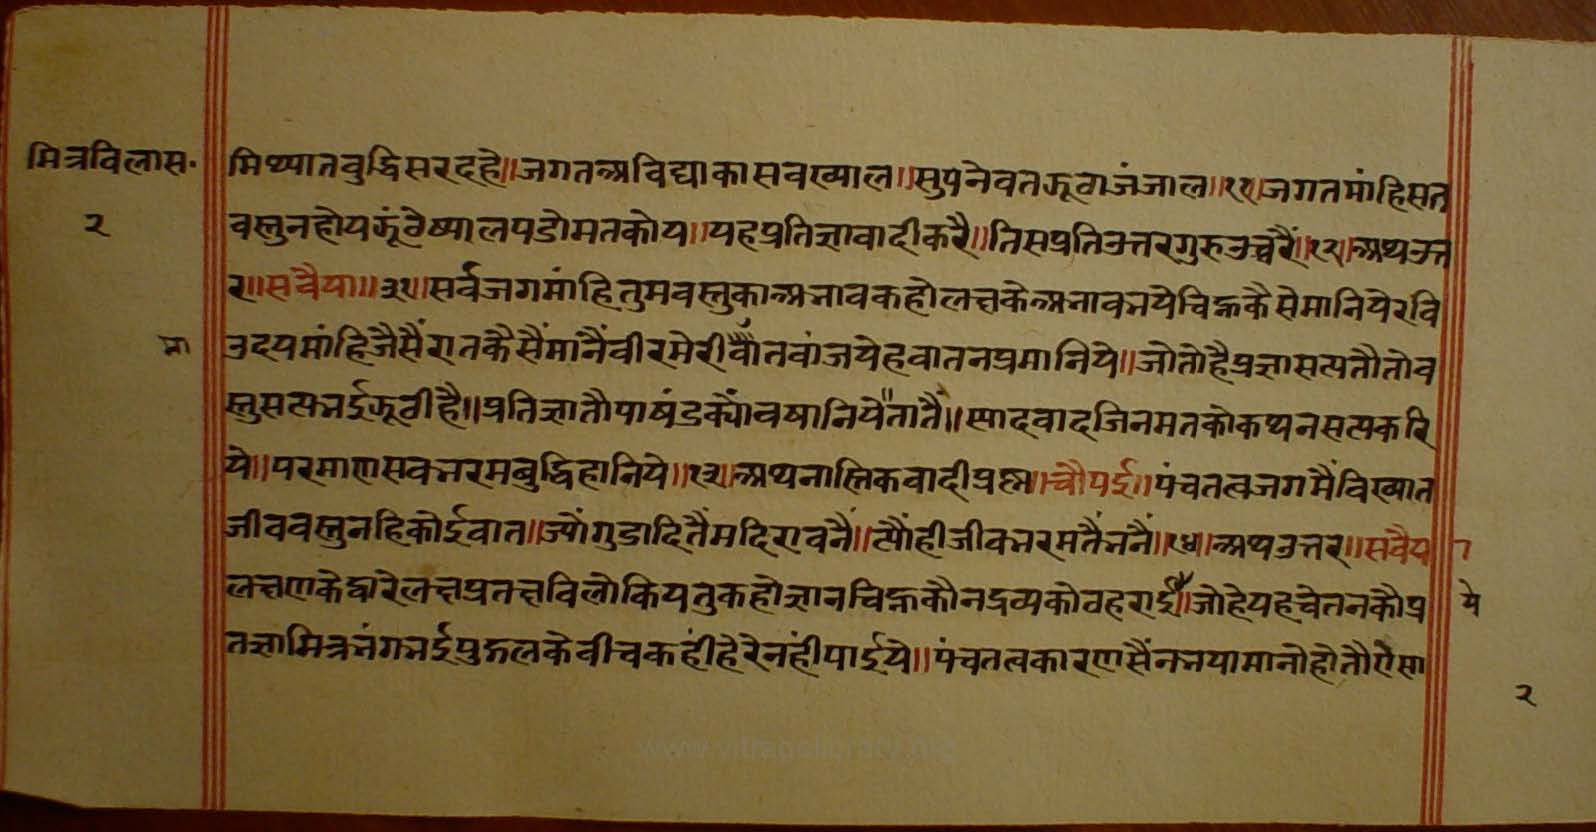 मित्रविलास॰
२
मिथ्यातबुद्धिसरदहे॥जगतअविद्याकासबख्याल॥सुपनेवतझूठाजंजाल॥११॥जगतमांहिसत
वस्तुनहोयझूंठेष्यालपडोमतकोय॥यहप्रतिज्ञावादीकरै॥तिसप्रतिउत्तरगुरुउच्चरैं॥१२॥अथउत्त
र॥सवैया॥३१॥सर्वजगमांहितुमवस्तुकाअभावकहोलक्षकेअभावभयेचिह्नकैसेमानियेरवि
उदयमांहिजैसैंरातकैसैंमांनैंवीरमेरीवौंतबांजयेहबातनप्रमानिये॥जोतोहैप्रज्ञासत्यतौतोव
स्तुसत्यभईझूठीहै॥प्रतिज्ञातौपाषंडक्यौंवषानियेतातै॥स्यादवादजिनमतकोकथनसत्यकरि
ये॥परमाणसबभरमबुद्धिहानिये॥१३॥अथनास्तिकवादीप्रश्न॥चौपई॥पंचतत्वजगमैंविख्यात
जीववस्तुनहिकोईवात॥ज्यौंगुडादितैंमदिराबनैं॥त्यौंहीजीवभरमतैंभनैं॥१४॥अथउत्तर॥सवैय
ा
लक्षणकेद्वारेलक्षप्रतक्षविलोकियतुकहोज्ञानचिह्नकौनद्रव्यकोठहराई॥जोहेयहचेतनकौप्र
ये
तज्ञामित्रभंगभईपुद्गलकेवीचकहींहेरेनहींपाईये॥पंचतत्वकारणसैंनभयामानोहोतौऐसा
२